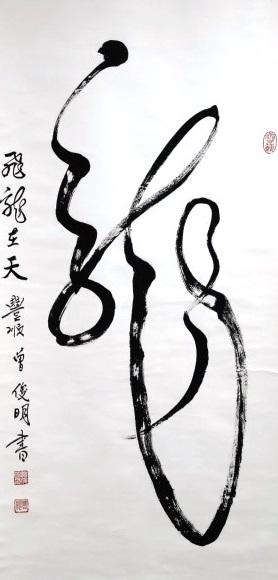 龍
飛龍在天
豐順曾俊明書